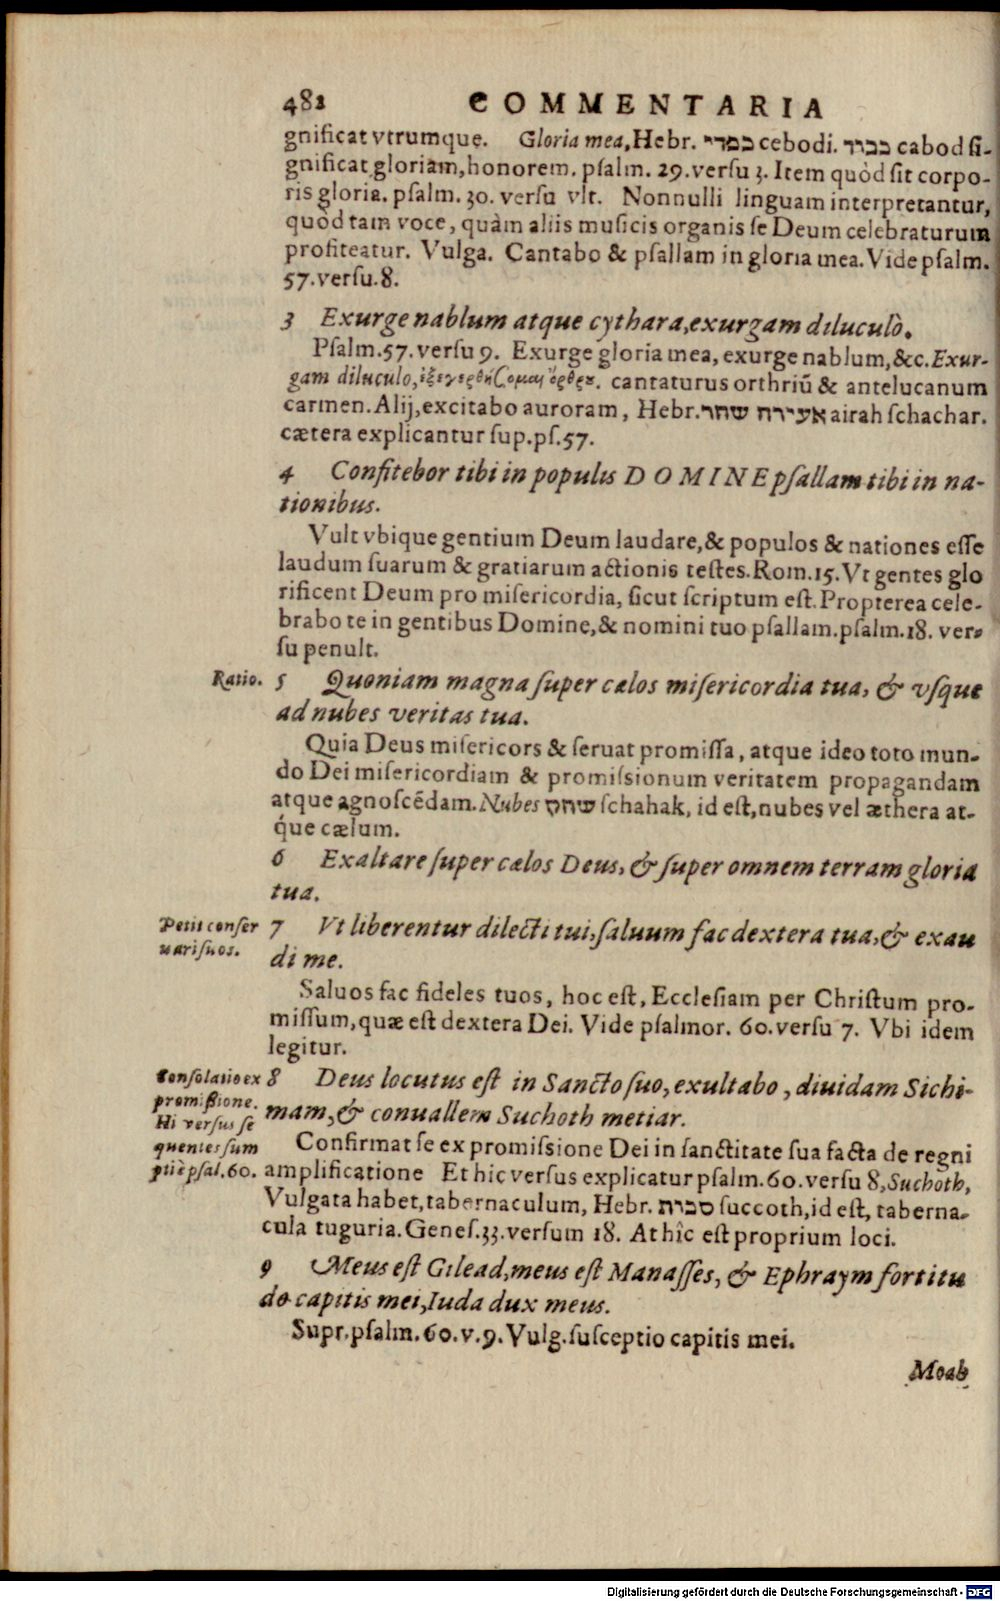 482 COMMENTARIA
gnificat vtrumque. Gloria mea, Hebr. כבודי cebodi. כבוד cabod si-
gnificat gloriam, honorem. psalm. 29. versu 3. Item quòd sit corpo-
ris gloria. psalm. 30. versu vlt. Nonnulli linguam interpretantur,
quòd tam voce, quàm aliis musicis organis se Deum celebraturum
profiteatur. Vulga. Cantabo & psallam in gloria mea. Vide psalm.
57. versu. 8.
3 Exurge nablum atque cythara, exurgam diluculò.
Psalm. 57. versu 9. Exurge gloria mea, exurge nablum, &c. Exur-
gam diluculo, ἐξεγερθήσομαι ὄρθρου. cantaturus orthriū & antelucanum
carmen. Alij, excitabo auroram, Hebr. אעירה שחר airah schachar.
cætera explicantur sup. ps. 57.
4 Confitebor tibi in populis DOMINE psallam tibi in na-
tionibus.
Vult vbique gentium Deum laudare, & populos & nationes esse
laudum suarum & gratiarum actionis testes. Rom. 15. Vt gentes glo
rificent Deum pro misericordia, sicut scriptum est. Propterea cele-
brabo te in gentibus Domine, & nomini tuo psallam. psalm. 18. ver-
su penult.
Ratio. 5 Quoniam magna super cælos misericordia tua, & vsque
ad nubes veritas tua.
Quia Deus misericors & seruat promissa, atque ideo toto mun-
do Dei misericordiam & promissionum veritatem propagandam
atque agnoscēdam. Nubes שחק schahak, id est, nubes vel æthera at-
que cælum.
6 Exaltare super cælos Deus, & super omnem terram gloria
tua.
Petit conser 7 Vt liberentur dilecti tui, saluum fac dextera tua, & exau
uari suos. di me.
Saluos fac fideles tuos, hoc est, Ecclesiam per Christum pro-
missum, quæ est dextera Dei. Vide psalmor. 60. versu 7. Vbi idem
legitur.
Consolatio ex 8 Deus locutus est in Sancto suo, exultabo, diuidam Sichi-
promißione. mam, & conuallem Suchoth metiar.
Hi versus se
quentes sum Confirmat se ex promissione Dei in sanctitate sua facta de regni
ptiè psal. 60. amplificatione Et hic versus explicatur psalm. 60. versu 8, Suchoth,
Vulgata habet, tabernaculum, Hebr. סכות succoth, id est, taberna-
cula tuguria. Genes. 33. versum 18. At hîc est proprium loci.
9 Meus est Gilead, meus est Manasses, & Ephraym fortitu
do capitis mei, Iuda dux meus.
Supr. psalm. 60. v. 9. Vulg. susceptio capitis mei.
Moab
Digitalisierung gefördert durch die Deutsche Forschungsgemeinschaft - DFG